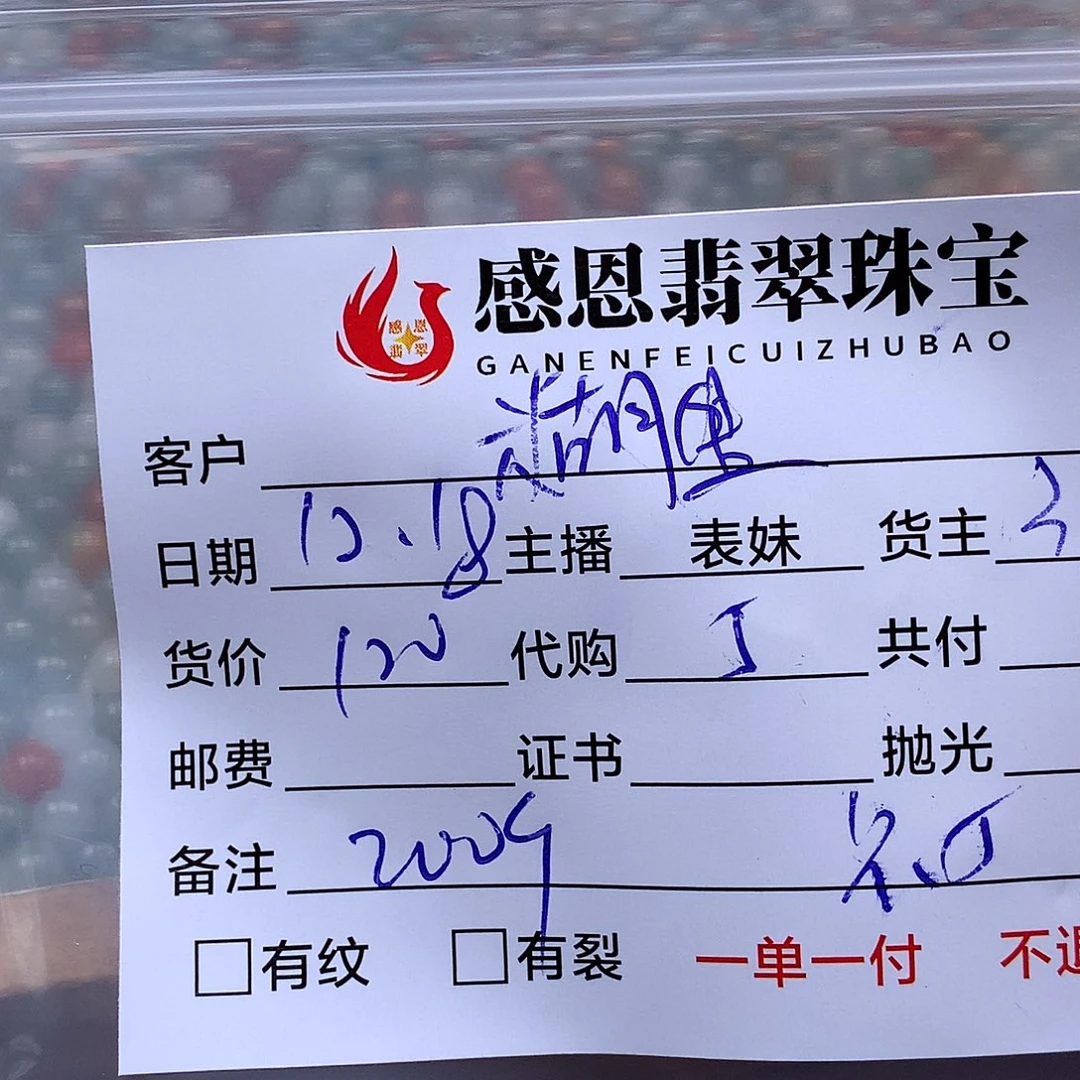 感恩翡翠珠宝
GANENFEICUIZHUBAO
感恩翡翠
客户
日期 12.18 主播 表妹 货主
货价 120 代购 5 共付
邮费 证书 抛光
备注 200g
有纹 有裂 一单一付 不退